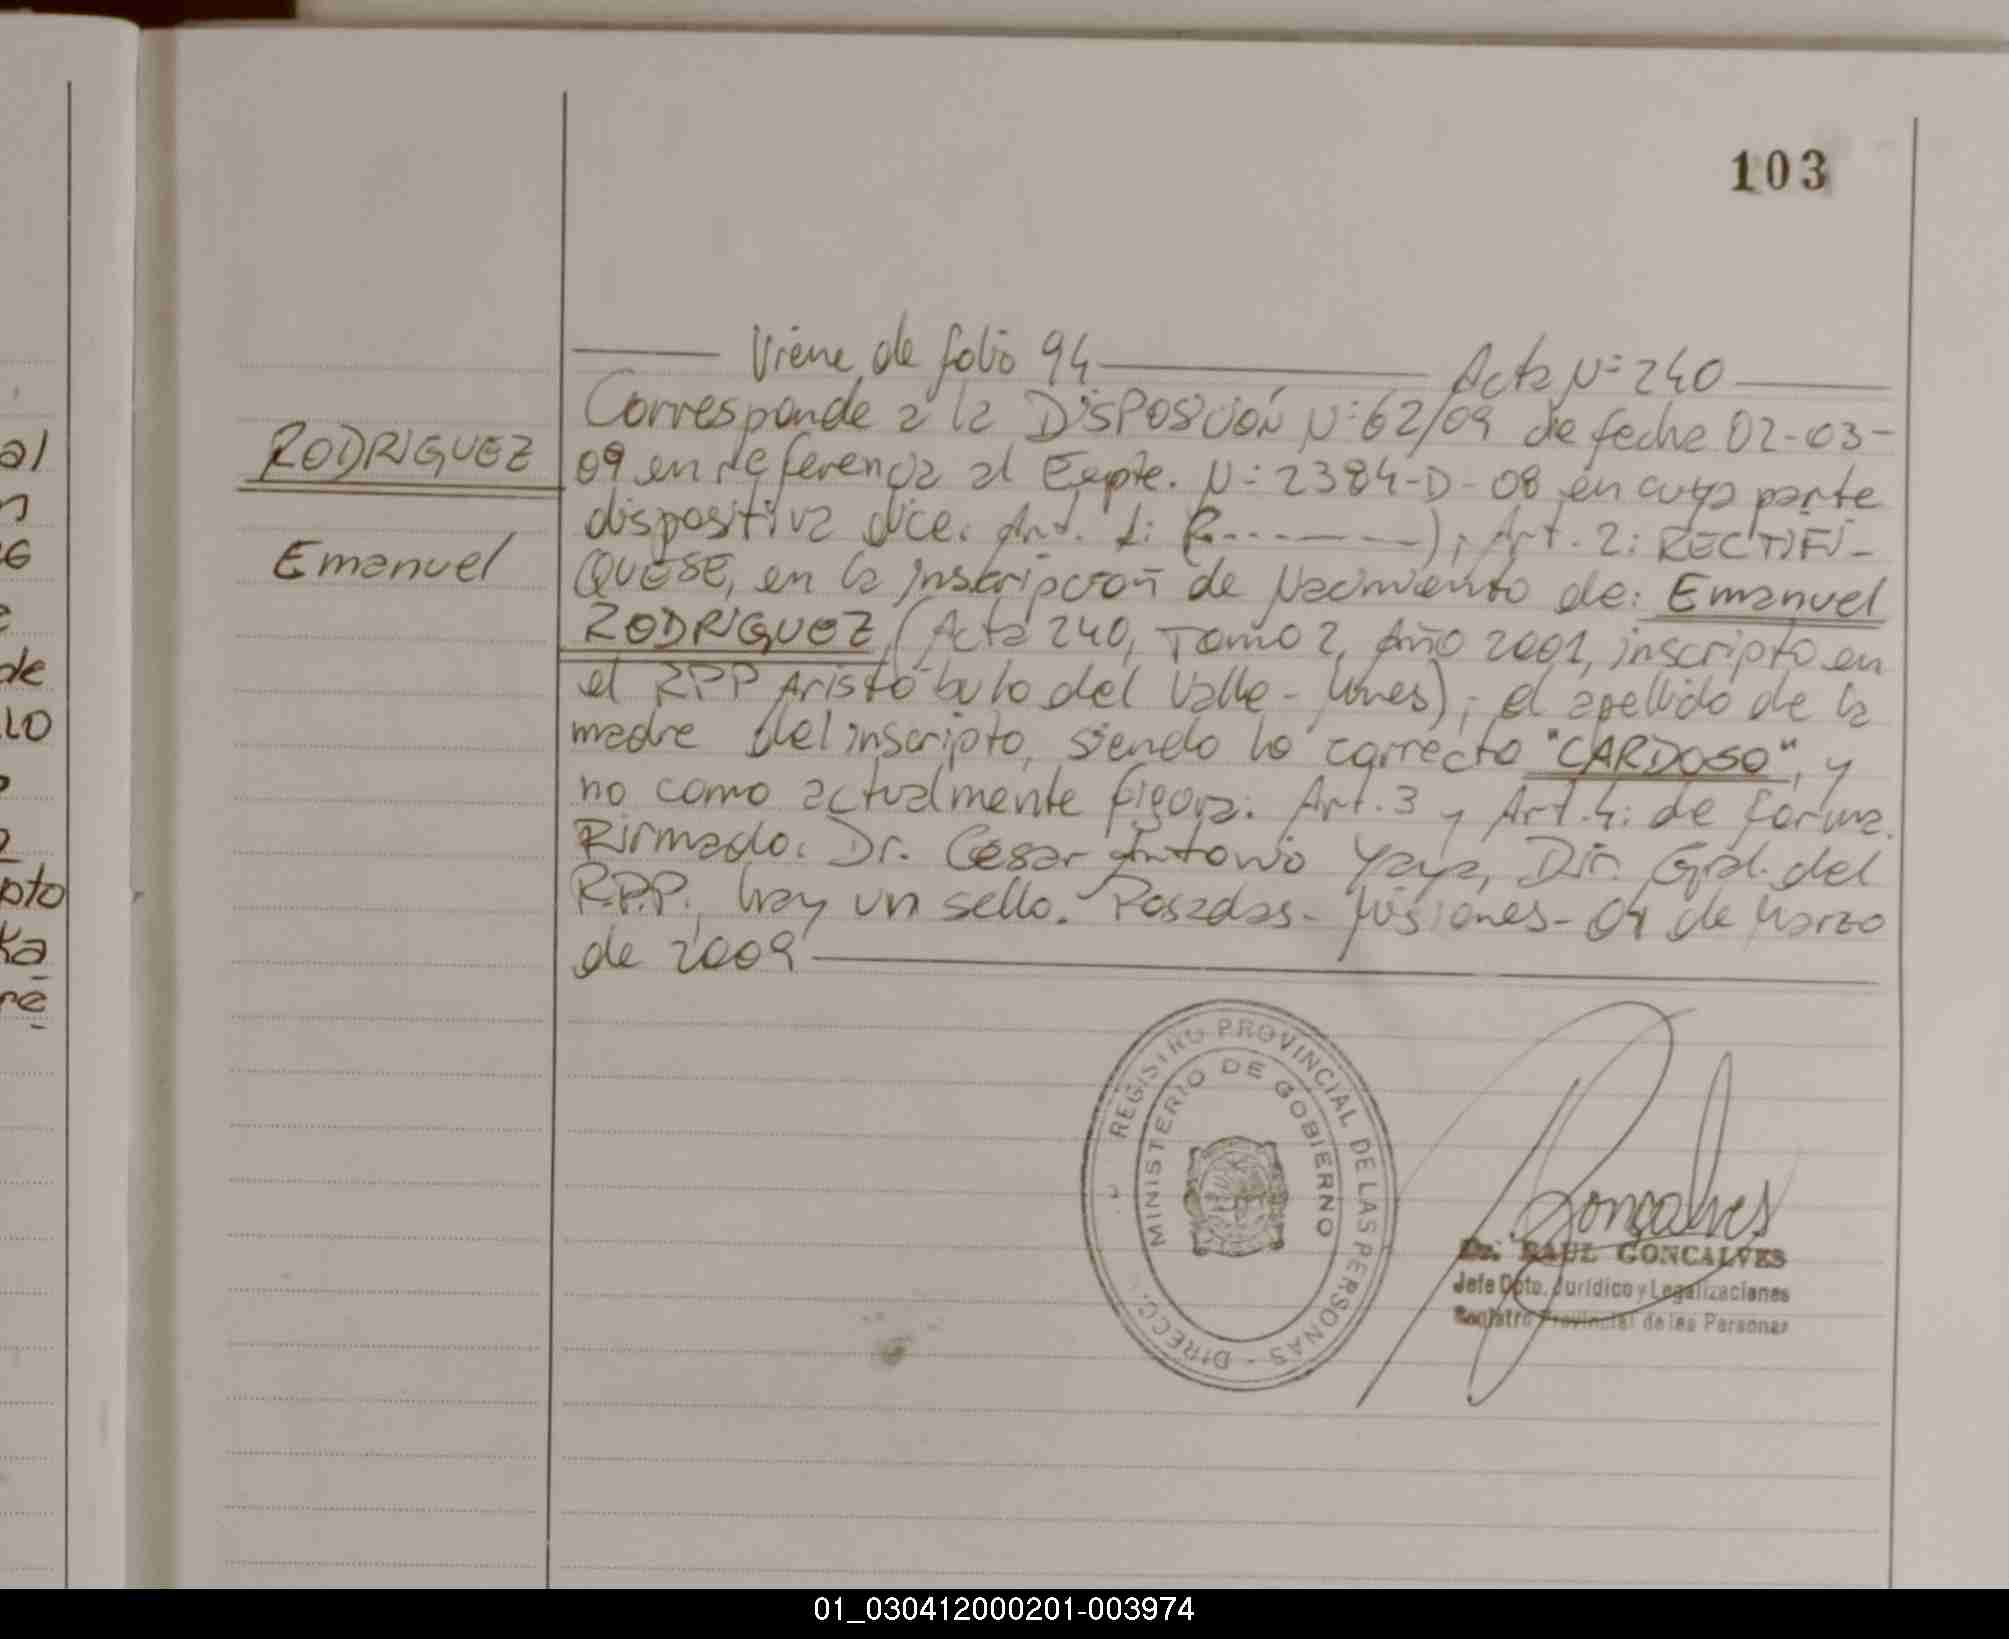 103
al
n
G
de
LO
pto
Ka
re
RODRIGUEZ
Emanuel
Viene de folio 94 Acta Nº 240
Corresponde a la DISPOSICIÓN Nº 62/09 de fecha 02-03-
09 en referencia al Expte. Nº 2384-D-08 en cuya parte
dispositiva dice. Art. 1: (--------), Art. 2: RECTIFI-
QUESE, en la inscripción de Nacimiento de: Emanuel
RODRIGUEZ (Acta 240, Tomo 2, Año 2001, inscripto en
el RPP Aristóbulo del Valle - Mnes), el apellido de la
madre del inscripto, siendo lo correcto "CARDOSO", y
no como actualmente figura. Art. 3 y Art. 4: de forma.
Firmado. Dr. Cesar Antonio Yaya, Dir. Gral. del
R.P.P., hay un sello. Posadas - Misiones - 04 de Marzo
de 2009
REGISTRO PROVINCIAL DE LAS PERSONAS - DIRECC.
MINISTERIO DE GOBIERNO
Gonçalves
Dr. RAUL GONCALVES
Jefe Dpto. Jurídico y Legalizaciones
Registro Provincial de las Personas
01_030412000201-003974